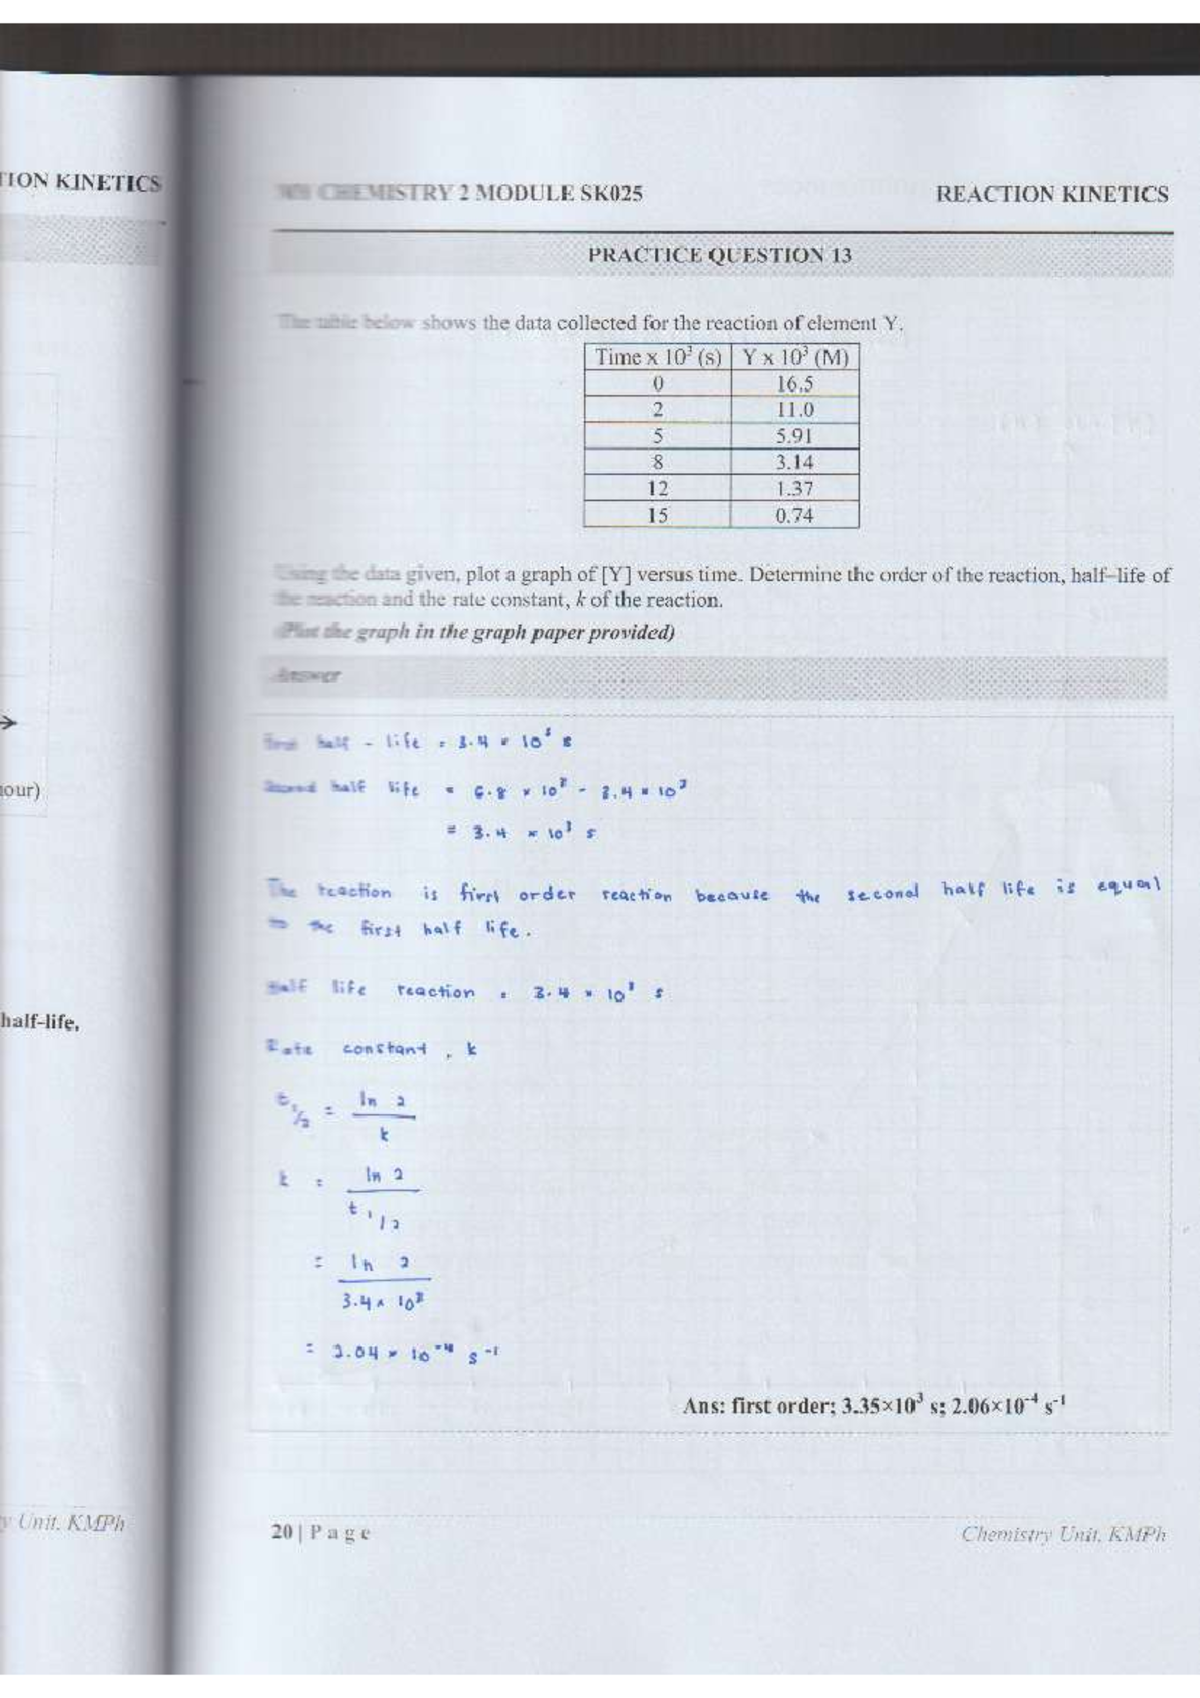 TION KINETICS
CHEMISTRY 2 MODULE SK025 REACTION KINETICS
PRACTICE QUESTION 13
The table below shows the data collected for the reaction of element Y.
Time x 10³ (s) Y x 10³ (M)
0 16.5
2 11.0
5 5.91
8 3.14
12 1.37
15 0.74
Using the data given, plot a graph of [Y] versus time. Determine the order of the reaction, half–life of
the reaction and the rate constant, k of the reaction.
(Plot the graph in the graph paper provided)
Answer
First half - life = 3.4 × 10³ s
Second half life = 6.8 × 10³ - 3.4 × 10³
= 3.4 × 10³ s
The reaction is first order reaction because the second half life is equal
to the first half life.
Half life reaction = 3.4 × 10³ s
Rate constant, k
t 1/2 = ln 2
k
k = ln 2
t 1/2
= ln 2
3.4 × 10³
= 2.04 × 10⁻⁴ s⁻¹
Ans: first order; 3.35×10³ s; 2.06×10⁻⁴ s⁻¹
20 | P a g e
Chemistry Unit, KMPh
our)
half-life,
y Unit, KMPh